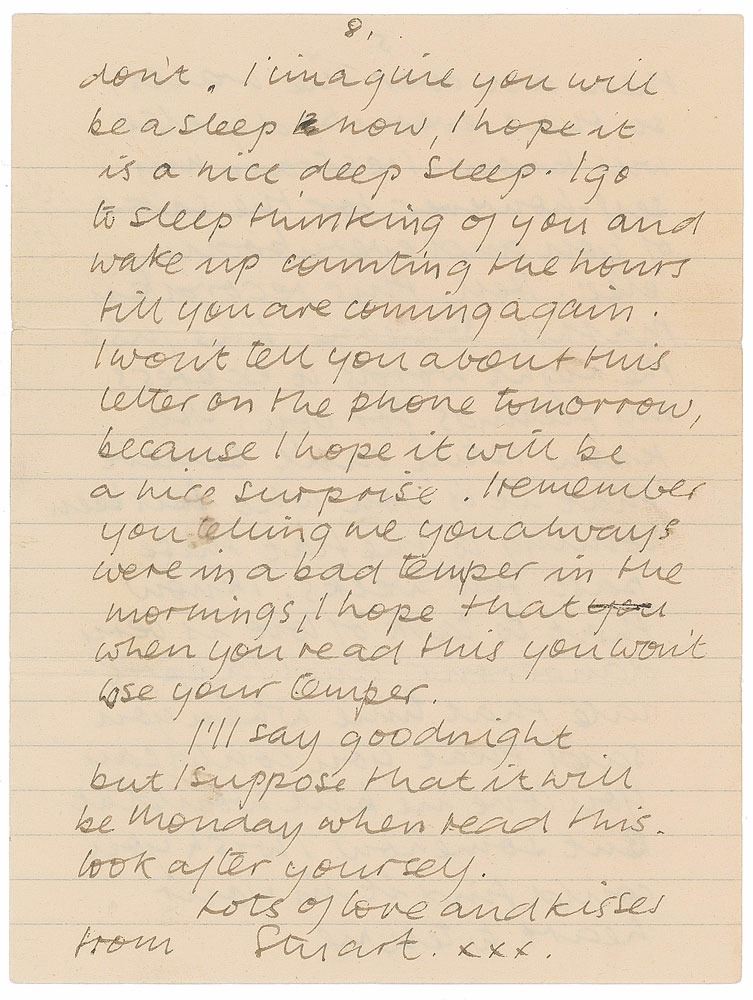 8.
don't. I imagine you will
be asleep now, I hope it
is a nice deep sleep. I go
to sleep thinking of you and
wake up counting the hours
till you are coming again.
I won't tell you about this
letter on the phone tomorrow,
because I hope it will be
a nice surprise. I remember
you telling me you always
were in a bad temper in the
mornings, I hope that you
when you read this you won't
lose your temper.
I'll say goodnight
but I suppose that it will
be Monday when read this.
look after yourself.
Lots of love and kisses
from Stuart. xxx.